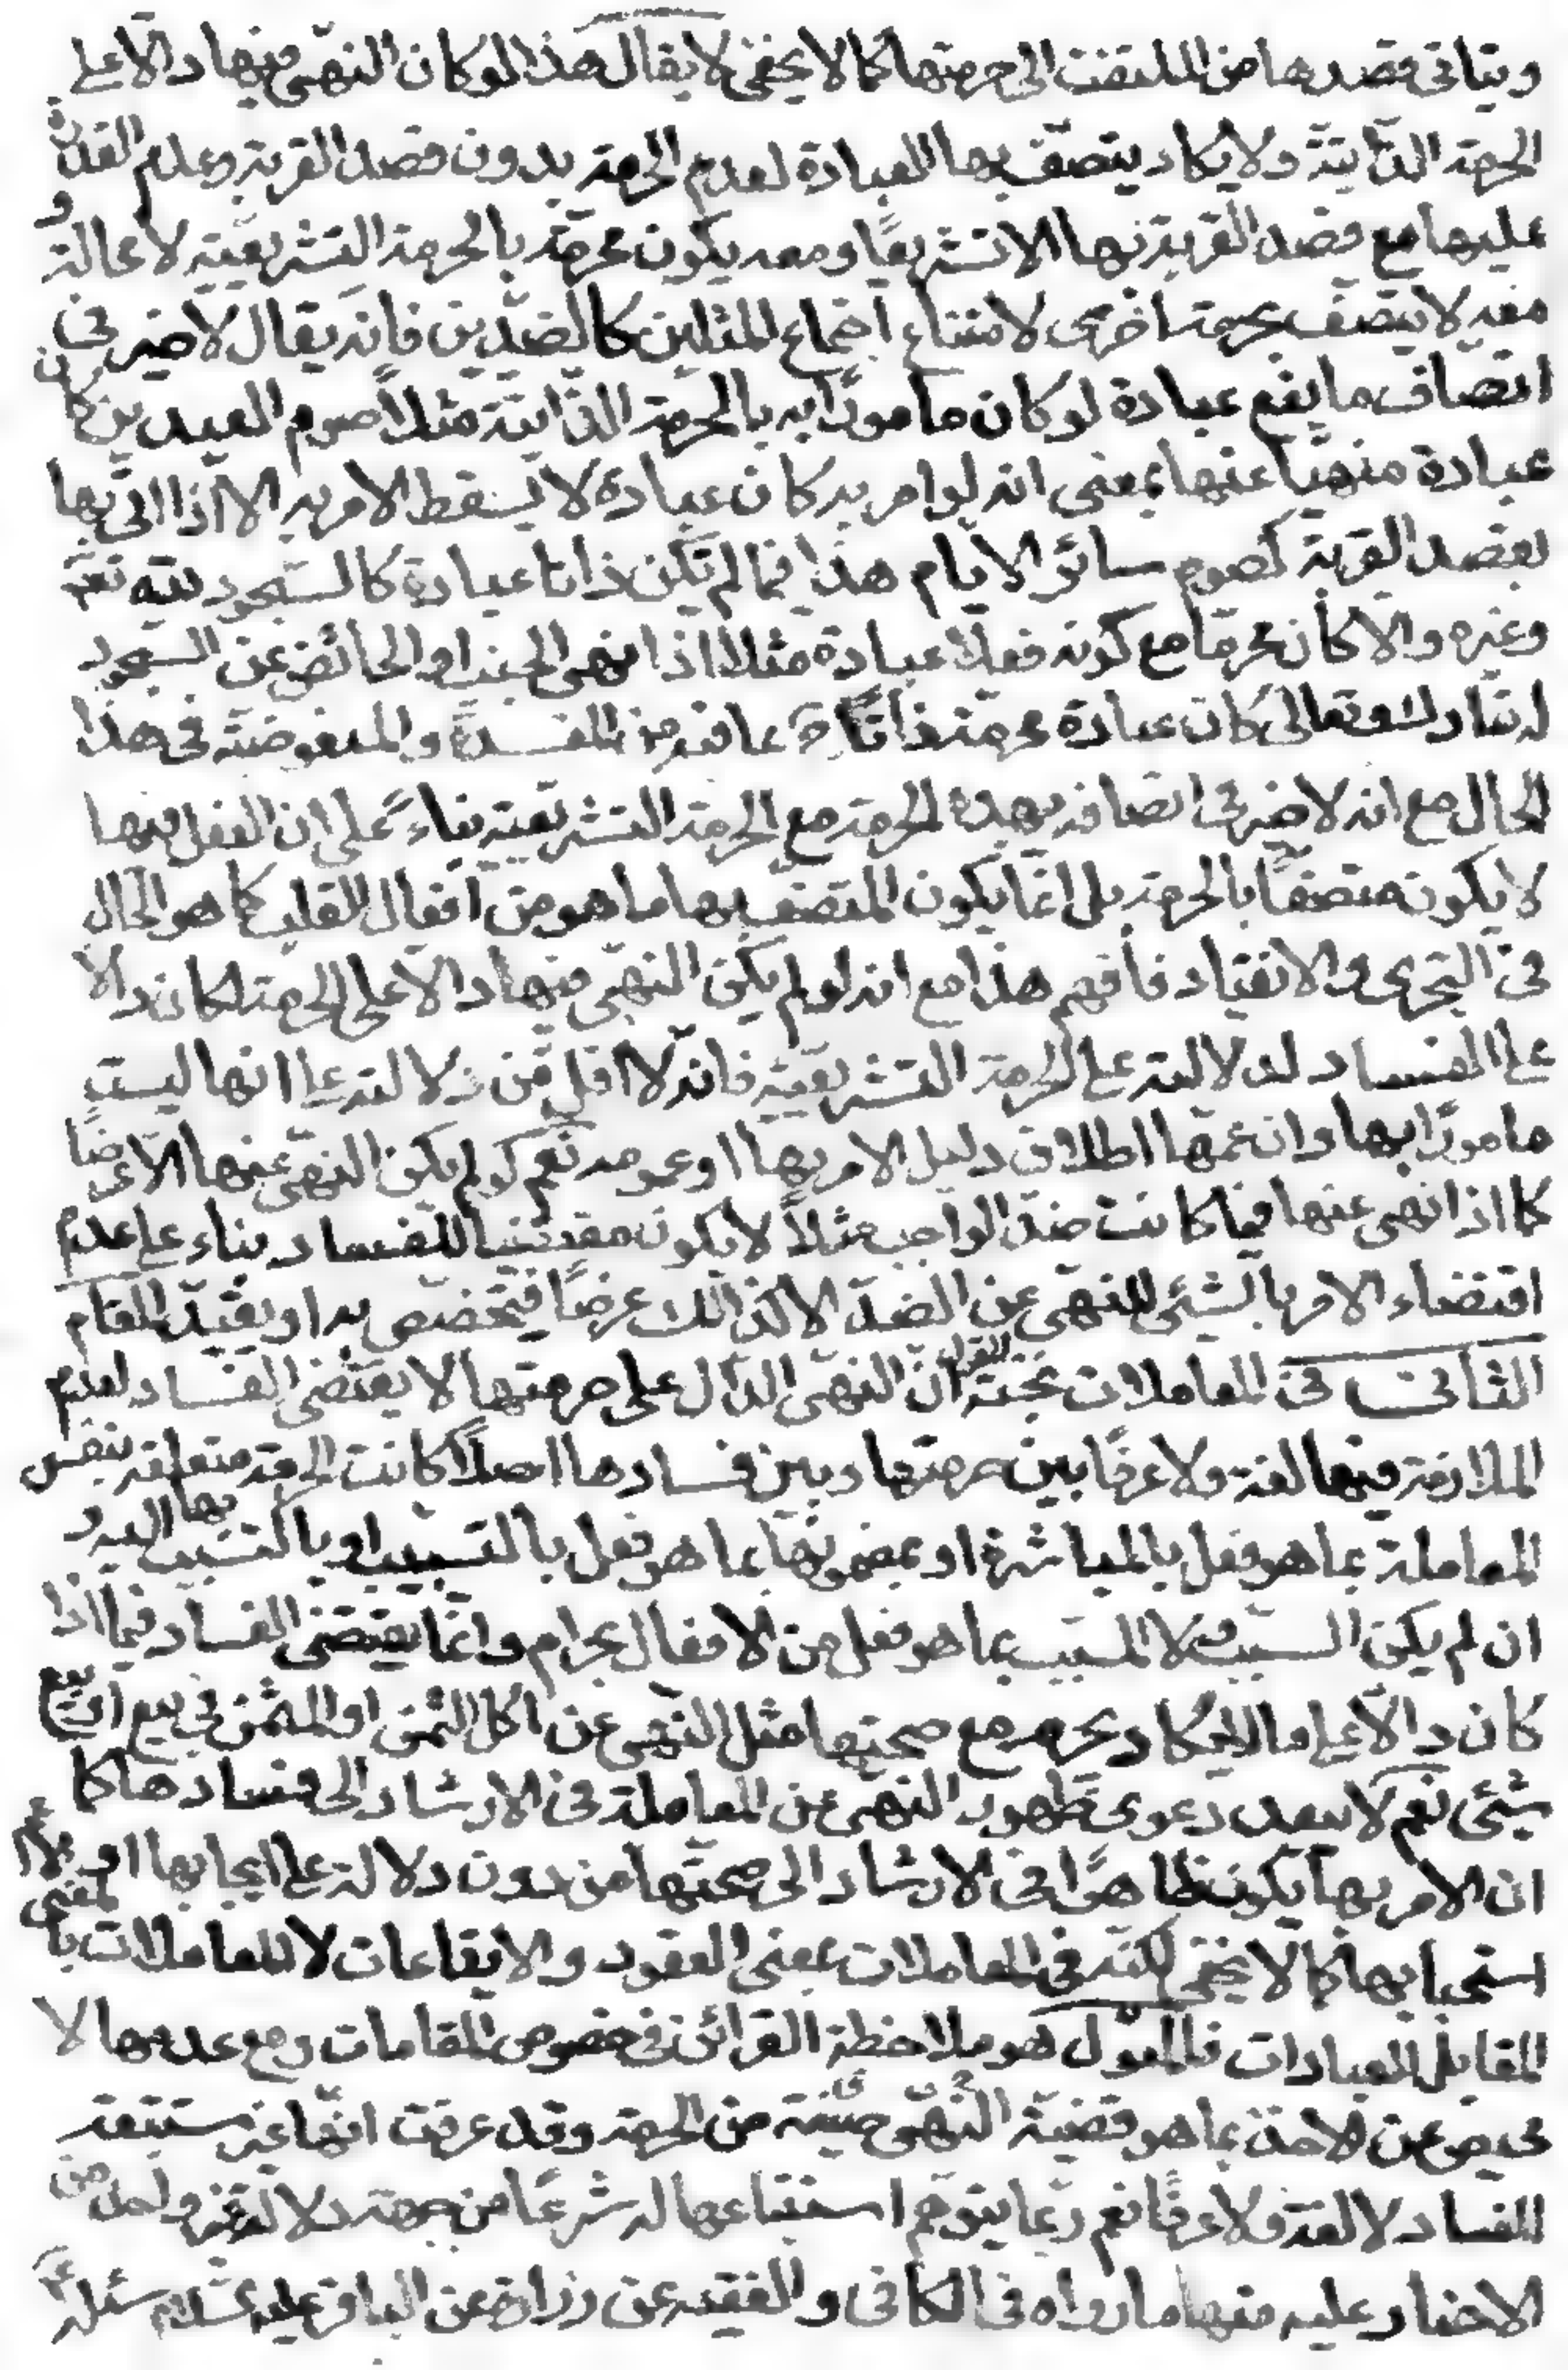 ويتأتى قصدها من الملتفت الى حرمتها كما لا يخفى لا يقال هذا لو كان النهى فيها دالا على
الحرمة الذاتية ولا يكاد يتصف بها العبادة لعدم الحرمة بدون قصد القربة وعدم القدرة
عليها مع قصد القربة بها الا تشريعًا ومعه يكون محرمة بالحرمة التشريعية لا محالة و
معه لا يتصف بحرمة اخرى لامتناع اجتماع المثلين كالضدين فانه يقال لا ضير فى
اتصاف ما يقع عبادة لو كان مأمورًا به بالحرمة الذاتية مثلاً صوم العيدين كان
عبادة منهيًا عنها بمعنى انه لو امر به كان عبادة لا يسقط الامر به الا اذا اتى بها
بقصد القربة كصوم سائر الايام هذا فيما لم تكن ذاتا عبادة كالسجود لله تعالى
وغيره والا كان محرما مع كونه فعلا عبادة مثلا اذا نهى الجنب او الحائض عن السجود
له تبارك وتعالى كان عبادة محرمة ذاتًا ح لما فيه من المفسدة والمبغوضية فى هذا
الحال مع انه لا ضير فى اتصافه بهذه الحرمة مع الحرمة التشريعية بناءً على ان الفعل فيها
لا يكون متصفًا بالحرمة بل انما يكون المتصف بها ما هو من افعال القلب كما هو الحال
فى التجرى والانقياد فافهم هذا مع انه لو لم يكن النهى فيها دالا على الحرمة لكان دالا
على الفساد لدلالته على الحرمة التشريعية فانه لا اقل من دلالته على انها ليست
مامورًا بها وان عمها اطلاق دليل الامر بها او عمومه نعم لو لم يكن النهى عنها الا عرضًا
كما اذا نهى عنها فيما كانت ضد الواجب مثلاً لا يكون مقتضيا للفساد بناء على عدم
اقتضاء الامر بالشئ للنهى عن الضد الا كذلك عرضًا فيخصص به او يقيد المقام
الثانى فى المعاملات ونخبة القول ان النهى الدال على حرمتها لا يقتضى الفساد لعدم
الملازمة فيها لغة ولا عرفًا بين حرمتها وبين فسادها اصلاً كانت الحرمة متعلقة بنفس
المعاملة بما هو فعل بالمباشرة او بمضمونها بما هو فعل بالتسبيب او بالتسبب بها اليه و
ان لم يكن السبب ولا المسبب بما هو فعل من الافعال بحرام وانما يقتضى الفساد فيما اذا
كان دالا على ما لا يكاد يحرم مع صحتها مثل النهى عن اكل الثمن او المثمن فى بيع او بيع
شئ نعم لا يبعد دعوى ظهور النهى عن المعاملة فى الارشاد الى فسادها كما
ان الامر بها يكون ظاهرًا فى الارشاد الى صحتها من دون دلالة على ايجابها او
استحبابها كما لا يخفى لكنه فى المعاملات بمعنى العقود والايقاعات لا المعاملات بالمعنى الاعم
المقابل للعبادات فالمعول هو ملاحظة القرائن فى خصوص المقامات ومع عدمها لا
محيص عن الاخذ بما هو قضية النهى من الحرمة وقد عرفت انها غير مستتبعة
للفساد لا لغة ولا عرفًا نعم ربما يتوهم استتباعها له شرعًا من جهة دلالة غير واحد من
الاخبار عليه منها ما رواه فى الكافى والفقيه عن زرارة عن الباقر عليه السلام سئله عن